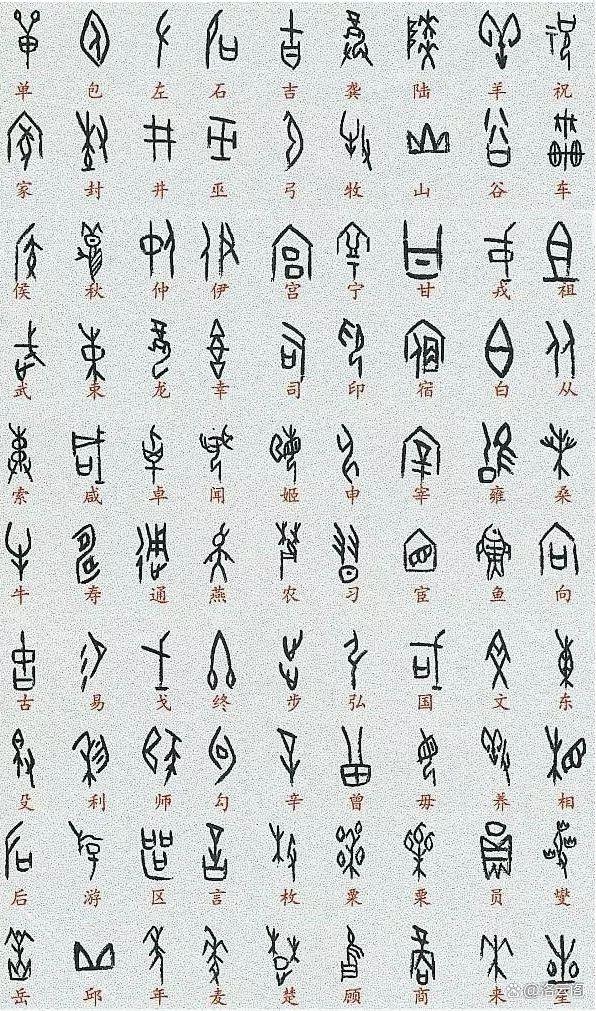 单 包 左 石 吉 龚 陆 羊 祝
家 封 井 巫 弓 牧 山 谷 车
侯 秋 仲 伊 宫 宁 甘 戎 祖
武 束 龙 幸 司 印 宿 白 从
索 咸 卓 闻 姬 申 宰 雍 桑
牛 寿 通 燕 农 习 宦 鱼 向
古 易 戈 终 步 弘 国 文 东
殳 利 师 勾 辛 曾 毋 养 相
后 游 区 言 枚 粟 栗 员 燮
岳 邱 年 麦 楚 顾 商 来 坚